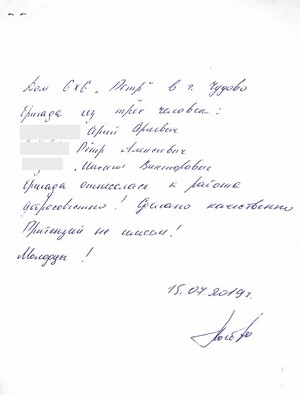 Дом 6х6 "Пётр" в г. Чудово
Бригада из трёх человек:
Юрьевич
Пётр Алексеевич
Михаил Викторович
Бригада отнеслась к работе
добросовестно! Сделано качественно
Притензий не имеем!
Молодцы!
15.07.2019г.